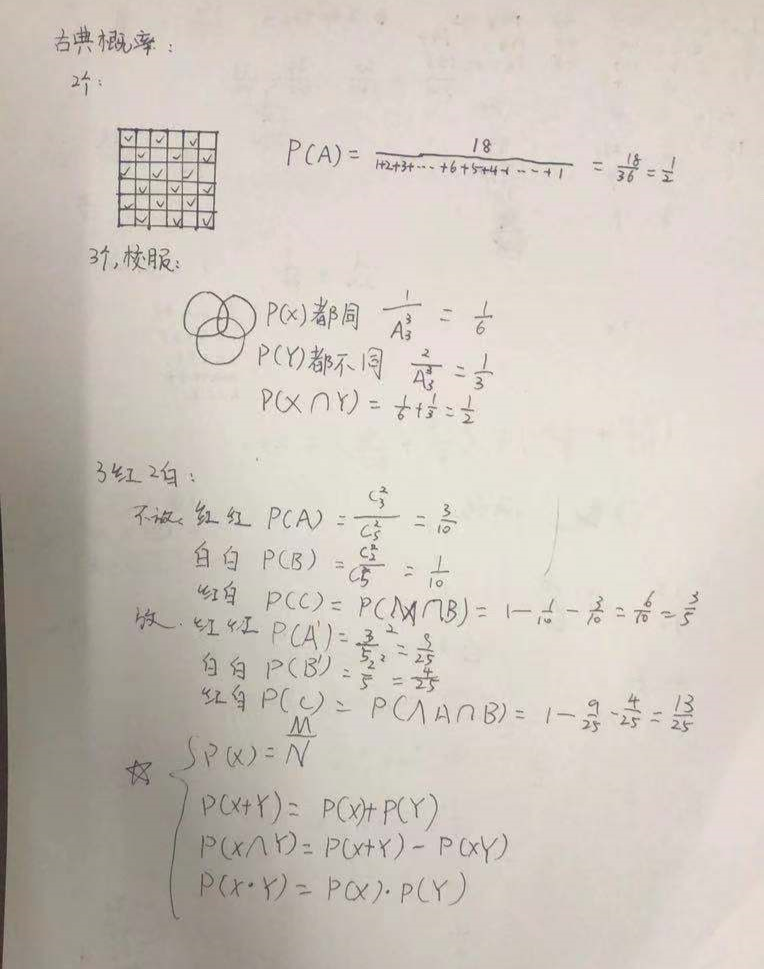 古典概率:
2个:
P(A) = 18/(1+2+3+⋯+6+5+4+⋯+1) = 18/36 = 1/2
3个,校服:
P(X)都同 1/A₃³ = 1/6
P(Y)都不同 2/A₃³ = 1/3
P(X∩Y) = 1/6 + 1/3 = 1/2
3红2白:
不放. 红红 P(A) = C₃²/C₅² = 3/10
白白 P(B) = C₂²/C₅² = 1/10
红白 P(C) = P(∧A∩B) = 1 − 1/10 − 3/10 = 6/10 = 3/5
放. 红红 P(A') = 3/5² = 9/25
白白 P(B') = 2/5² = 4/25
红白 P(C) = P(∧A∩B) = 1 − 9/25 − 4/25 = 13/25
☆ P(X) = M/N
P(X+Y) = P(X)+P(Y)
P(X∩Y) = P(X+Y) − P(XY)
P(X·Y) = P(X)·P(Y)